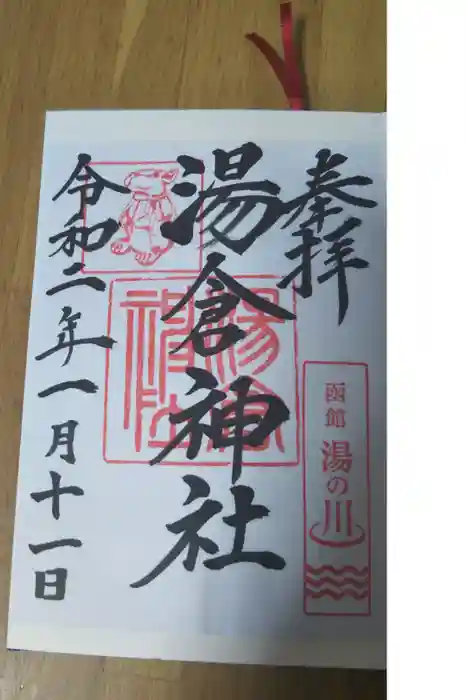 奉拝
函館 湯の川
湯倉神社
湯倉神社
令和二年一月十一日